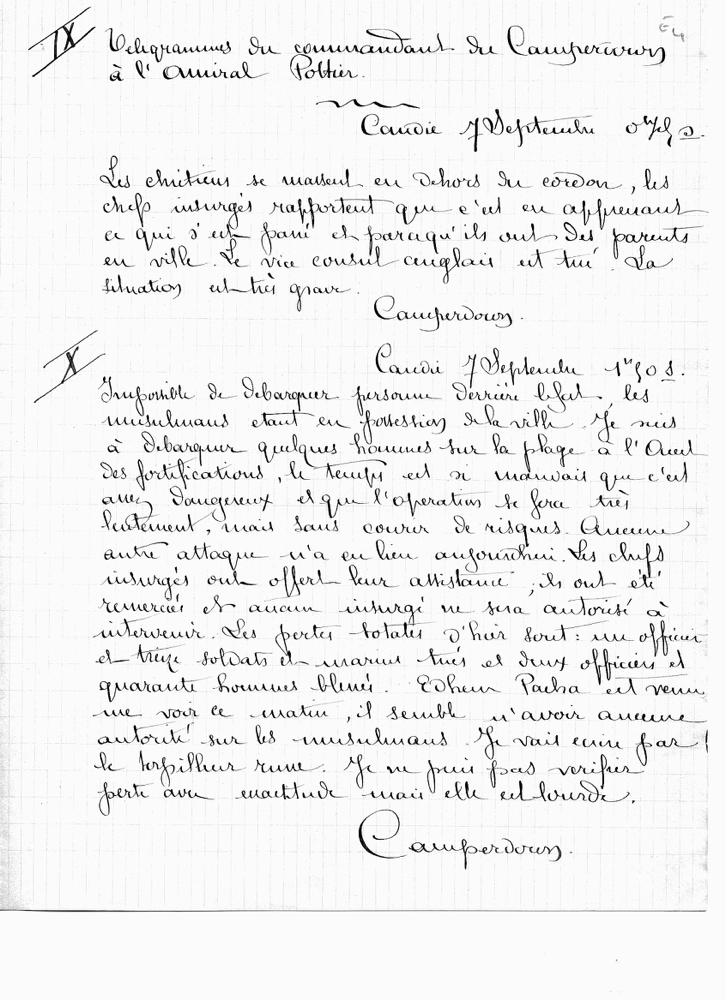 E4
IX Télégrammes du commandant du Camperdown
à l'Amiral Pottier.
Candie 7 Septembre s.
Les chrétiens se massent en dehors du cordon, les
chefs insurgés rapportent que c'est en apprenant
ce qui s'est passé et parcequ'ils ont des parents
en ville. Le vice consul anglais est tué. La
situation est très grave.
Camperdown.
X Candie 7 Septembre 1h50 s.
Impossible de débarquer personne derrière le fort, les
musulmans étant en possession de la ville. Je suis
à débarquer quelques hommes sur la plage à l'Ouest
des fortifications, le temps est si mauvais que c'est
assez dangereux et que l'opération se fera très
lentement, mais sans courir de risques. Aucune
autre attaque n'a eu lieu aujourd'hui. Les chefs
insurgés ont offert leur assistance, ils ont été
remerciés et aucun insurgé ne sera autorisé à
intervenir. Les pertes totales d'hier sont : un officier
et treize soldats et marins tués et deux officiers et
quarante hommes blessés. Edhem Pacha est venu
me voir ce matin, il semble n'avoir aucune
autorité sur les musulmans. Je vais écrire par
le torpilleur russe. Je ne puis pas vérifier
perte avec exactitude mais elle est lourde.
Camperdown.